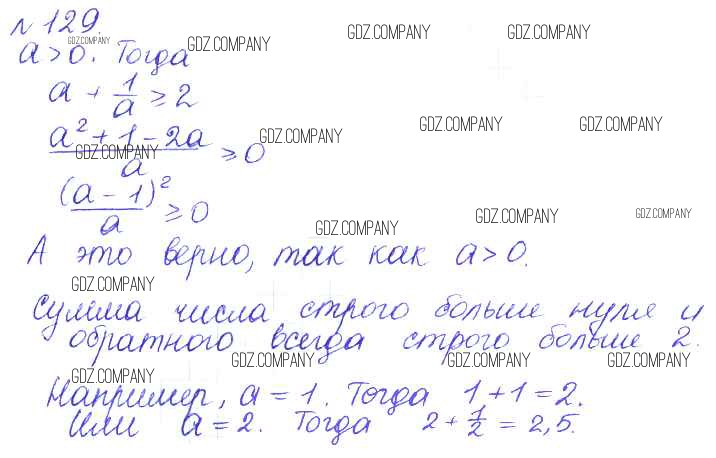 № 129.
GDZ.COMPANY GDZ.COMPANY GDZ.COMPANY GDZ.COMPANY
a > 0. Тогда
a + 1/a ≥ 2
GDZ.COMPANY GDZ.COMPANY
(a² + 1 - 2a)/a ≥ 0
GDZ.COMPANY GDZ.COMPANY
(a - 1)²/a ≥ 0
GDZ.COMPANY GDZ.COMPANY GDZ.COMPANY
А это верно, так как a > 0.
GDZ.COMPANY
Сумма числа строго больше нуля и
обратного всегда строго больше 2.
GDZ.COMPANY GDZ.COMPANY GDZ.COMPANY GDZ.COMPANY
Например, a = 1. Тогда 1 + 1 = 2.
Или a = 2. Тогда 2 + 1/2 = 2,5.